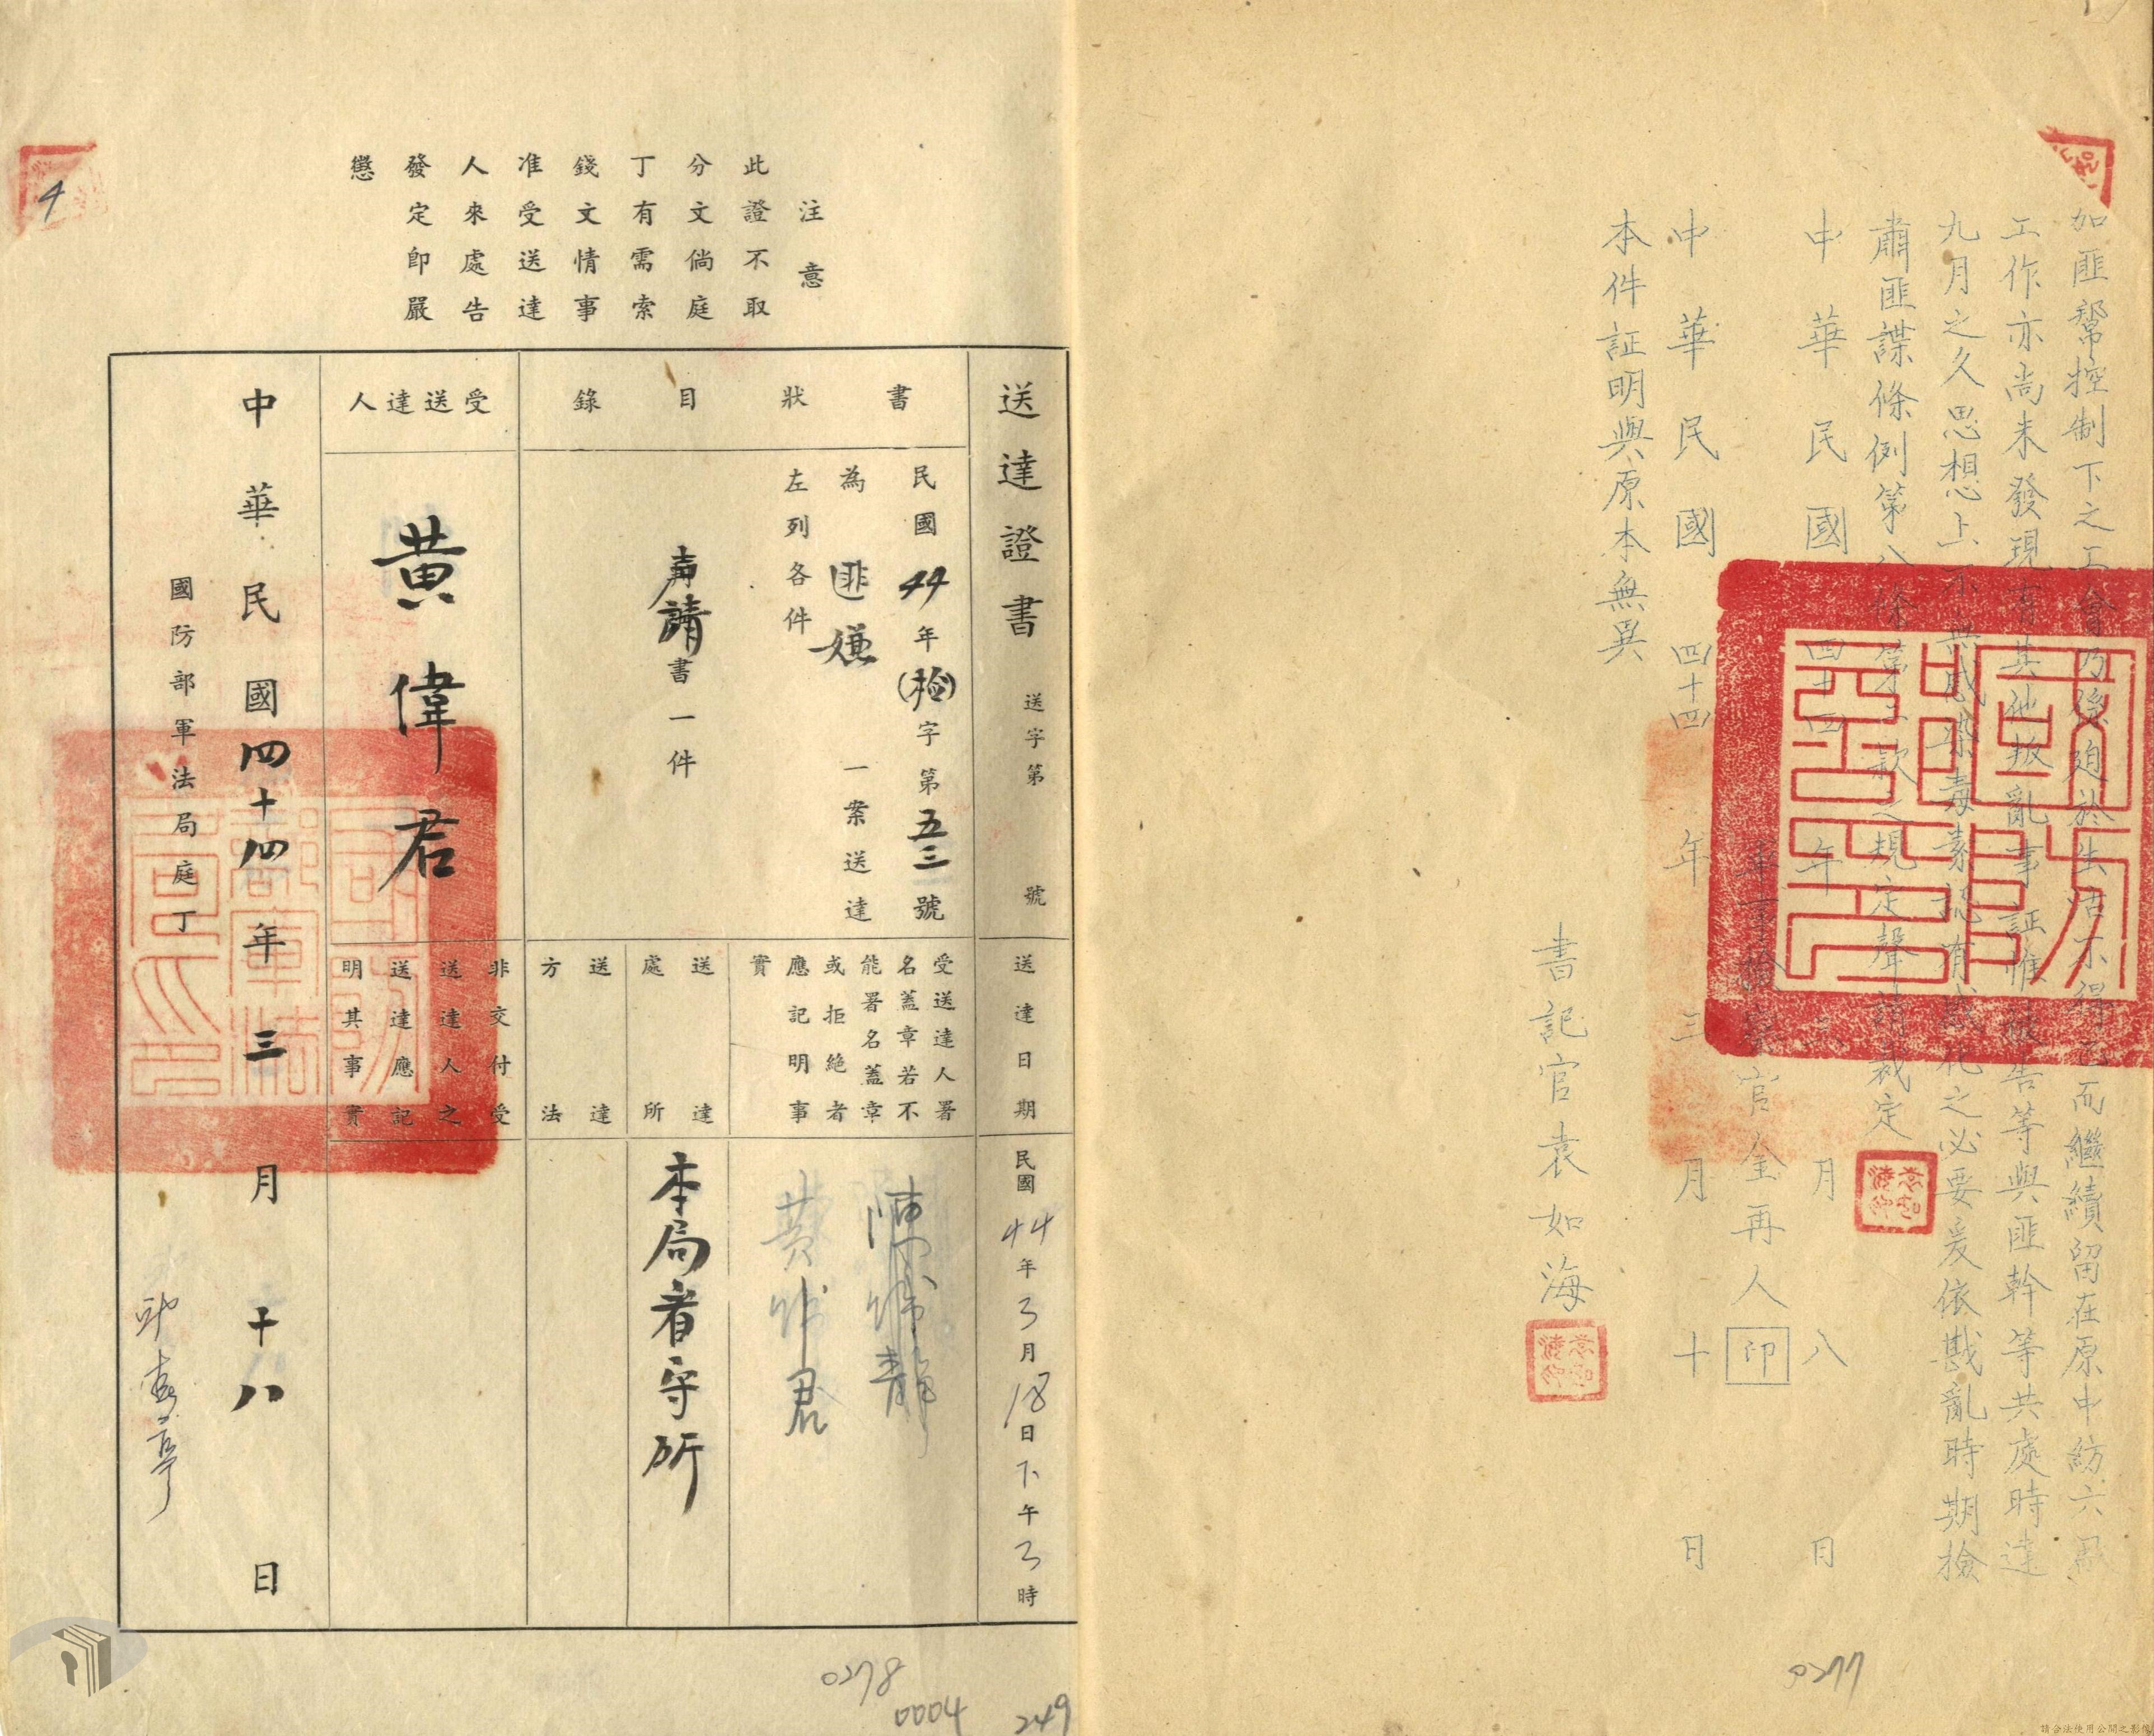 如匪幫控制下之工會乃係迫於生活不得已而繼續留在原中紡六厰
工作亦尚未發現有其他叛亂事証惟被告等與匪幹等共處時達
九月之久思想上不無感染毒素認有感化之必要爰依戡亂時期檢
肅匪諜條例第八條第二款之規定聲請裁定
中華民國四十四年三月八日
軍事檢察官金再人印
中華民國四十四年三月十日
本件証明與原本無異
書記官袁如海
0277
注意
此證不取
分文倘庭
丁有需索
錢文情事
准受送達
人來處告
發定即嚴
懲
送達證書 送字第 號
書狀目錄
民國44年(檢)字第五三號
為匪嫌一案送達
左列各件
聲請書一件
受送達人
黃偉君
送達日期
民國44年3月18日下午3時
受送達人署
名蓋章若不
能署名蓋章
或拒絶者
應記明事
實
黃偉君
送達
處所
本局看守所
送達
方法
非交付受
送達人之
送達應記
明其事實
中華民國四十四年三月十八日
國防部軍法局庭丁
4
0278
0004
249
請合法使用公開之影像